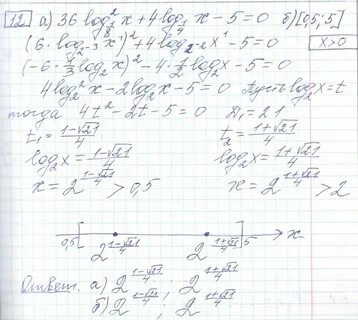 12 а) 36 log²_{1/8} x + 4 log_{1/4} x - 5 = 0 б) [0,5; 5]
(6 · log_{2^{-3}} x¹)² + 4 log_{2^{-2}} x¹ - 5 = 0 x>0
(-6 · 1/3 log₂ x)² - 4 · 1/2 log₂ x - 5 = 0
4 log₂² x - 2 log₂ x - 5 = 0 Пусть log₂ x = t
тогда 4t² - 2t - 5 = 0 D₁ = 21
t₁ = (1-√21)/4 t₂ = (1+√21)/4
log₂ x = (1-√21)/4 log₂ x = (1+√21)/4
x = 2^{(1-√21)/4} > 0,5 x = 2^{(1+√21)/4} > 2
0,5 2^{(1-√21)/4} 2^{(1+√21)/4} 5 x
Ответ. а) 2^{(1-√21)/4} ; 2^{(1+√21)/4}
б) 2^{(1-√21)/4} ; 2^{(1+√21)/4}